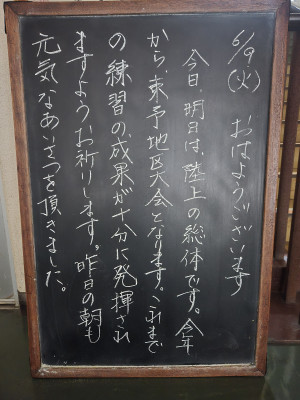 6/9(火) おはようございます
今日、明日は、陸上の総体です。今年
から、東予地区大会となります。これまで
の練習の成果が十分に発揮され
ますようお祈りします。昨日の朝も
元気なあいさつを頂きました。